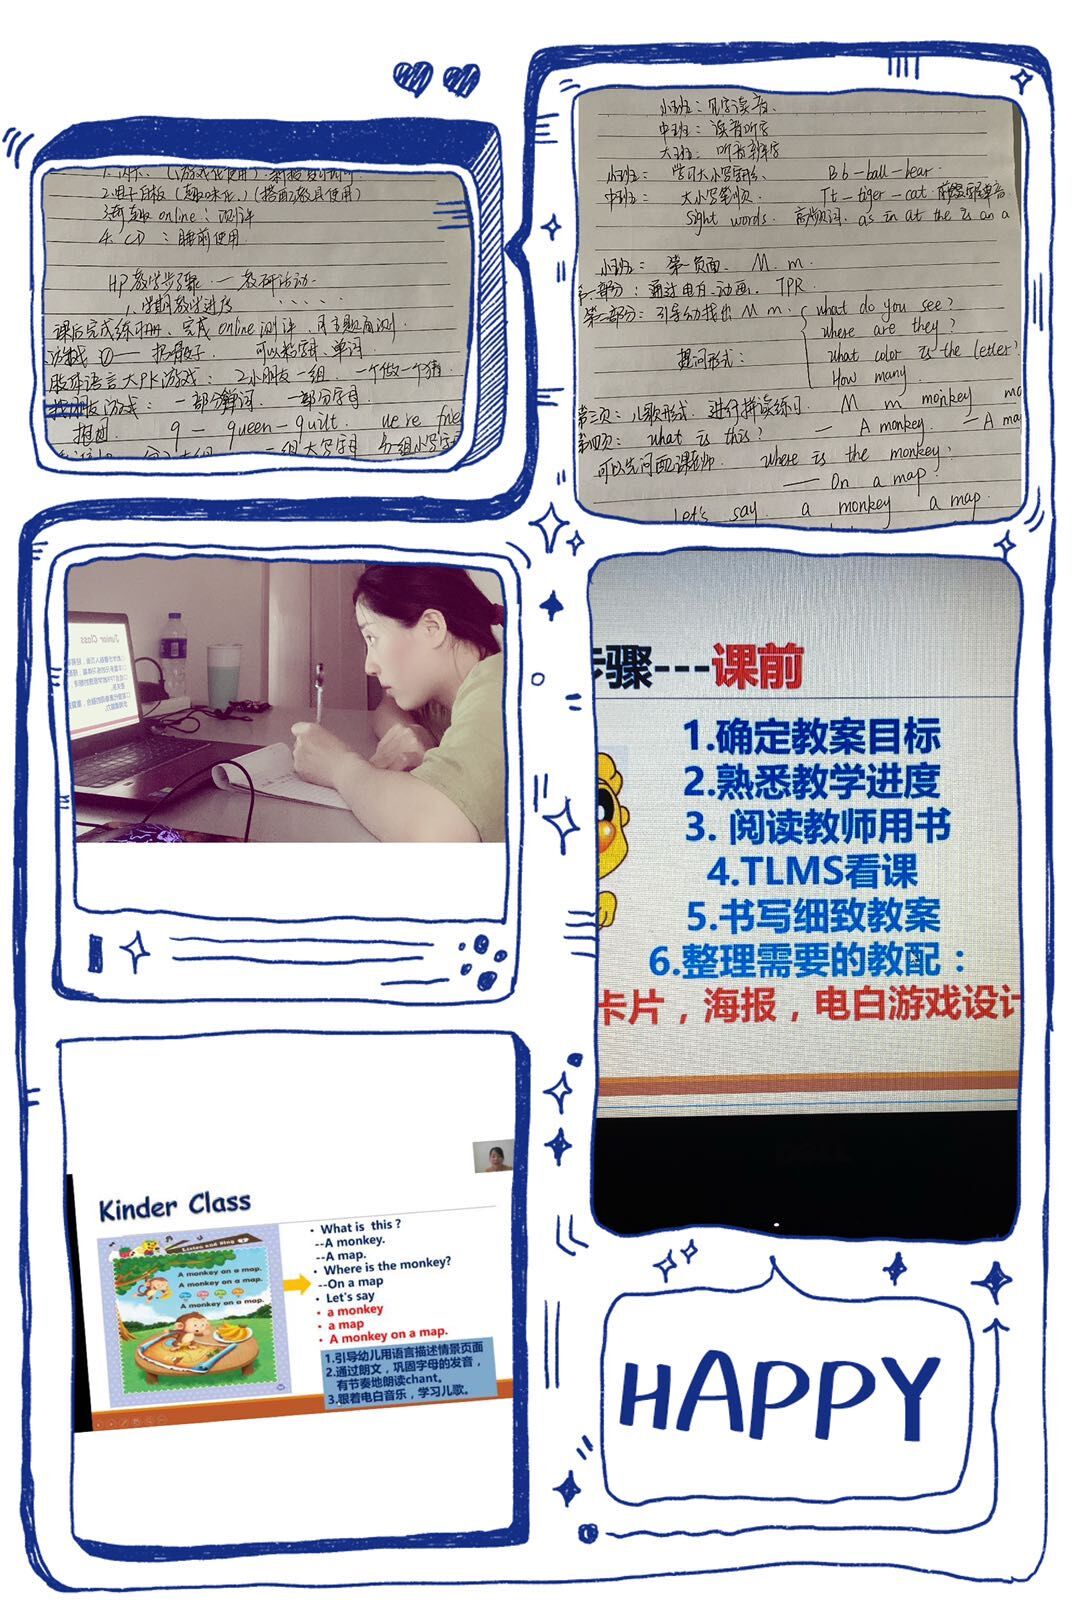 2.电子白板（趣味化）（搭配教具使用）
3.新趣online：测评
4. CD ：睡前使用
HP教学步骤：— 教研活动.
1.学期教学进度 . . . . .
课后完成练习册、完成online测评、月主题面测
可以粘字母、单词.
肢体语言大PK游戏：2小朋友一组 一个做一个猜.
游戏：一部分单词. 一部分字母
q — queen - quilt. we're frie
一组大写字母 另一组小写字母
小班：见字读音.
中班：读音听字
大班：听音辨字
小班：学习大小写字母. Bb-ball-bear.
中班：大小写笔顺. Tt-tiger-cat.
Sight words. 高频词. as in at the is an a
小班：第一页面. M. m.
第一部分：通过电白.动画. TPR.
第二部分：引导幼找出Mm.
what do you see?
where are they?
提问形式：
what color is the letter?
How many.
第三页：儿歌形式.进行拼读练习. M m monkey
第四页：what is this? — A monkey. — A ma
可以先问配课老师. where is the monkey?
— On a map.
Let's say. a monkey a map
Junior Class
步骤---课前
1.确定教案目标
2.熟悉教学进度
3. 阅读教师用书
4.TLMS看课
5.书写细致教案
6.整理需要的教配：
卡片，海报，电白游戏设计
Kinder Class
Listen and Sing
A monkey on a map.
A monkey on a map.
A monkey on a map.
• What is this ?
--A monkey.
--A map.
• Where is the monkey?
--On a map
• Let's say
• a monkey
• a map
• A monkey on a map.
1.引导幼儿用语言描述情景页面
2.通过朗文，巩固字母的发音，
有节奏地朗读chant。
3.跟着电白音乐，学习儿歌。
HAPPY